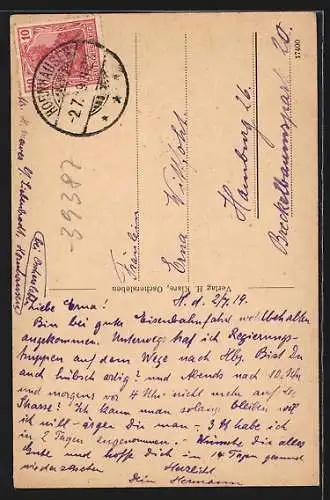 HORNHAUSEN
2.7.19
10
17400
Fräulein
Erna
Hamburg 26.
Brekelbaumspark 20.
Verlag H. Klare, Oschersleben
39387
H. d. 2/7.19.
Liebe Erna!
Bin bei guter Eisenbahnfahrt wohlbehalten
angekommen. Unterwegs traf ich Regierungs-
truppen auf dem Wege nach Hbg. Bist Du
auch hübsch artig? und Abends nach 10 Uhr
und morgens vor 4 Uhr nicht mehr auf der
Strasse? Ich kann man solang bleiben wie
ich will – arger Dir man – Ich habe ich
in 2 Tagen zugenommen. – Wünsche Dir alles
Gute und hoffe Dich in 14 Tagen gesund
wiederzusehen Herzlichst
Dein Hermann